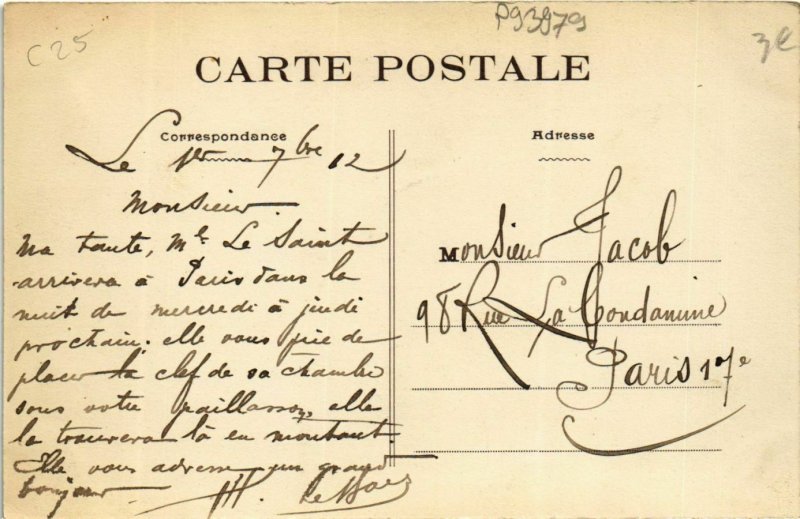 C25
P93979
3€
CARTE POSTALE
Correspondance
Le 1er 7bre 12
Monsieur
Ma tante, Me Le Saint
arrivera à Paris dans la
nuit de mercredi à jeudi
prochain; elle vous prie de
placer la clef de sa chambre
sous votre paillasson, elle
la trouvera là en montant.
Elle vous adresse un grand
bonjour
Adresse
Monsieur Jacob
98 Rue La Condamine
Paris 17e